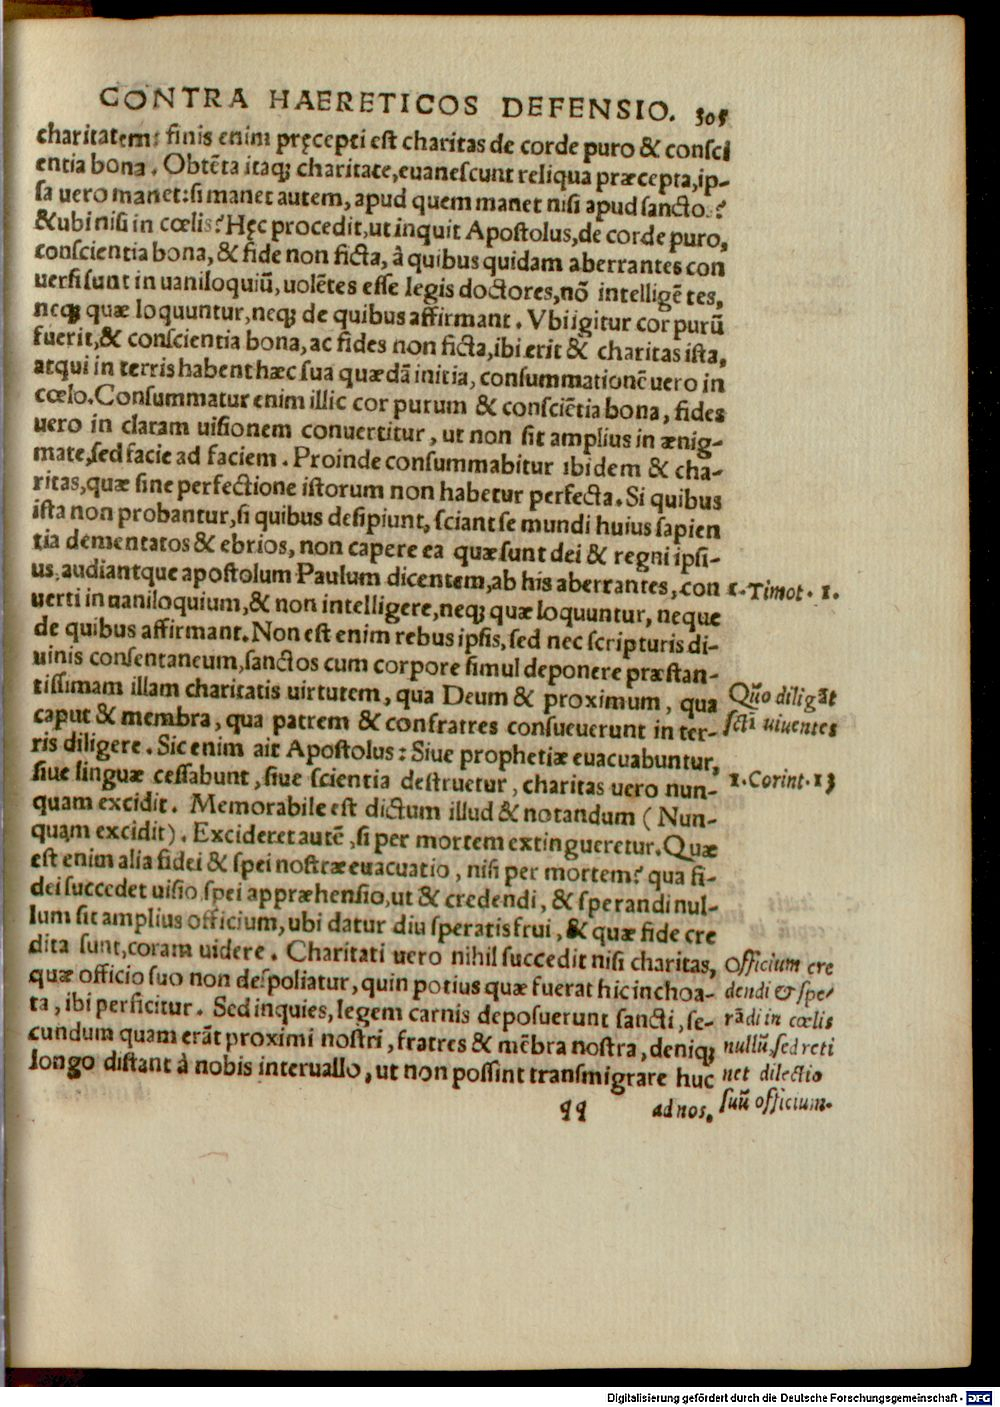 CONTRA HAERETICOS DEFENSIO. 305
charitatem: finis enim pręcepti est charitas de corde puro & consci
entia bona. Obtẽta itaq; charitate, euanescunt reliqua præcepta, ip-
sa uero manet: si manet autem, apud quem manet nisi apud sancto.?
& ubi nisi in cœlis? Hęc procedit, ut inquit Apostolus, de corde puro,
conscientia bona, & fide non ficta, à quibus quidam aberrantes con
uersi sunt in uaniloquiũ, uolẽtes esse legis doctores, nõ intelligẽtes,
neq; quæ loquuntur, neq; de quibus affirmant. Vbi igitur cor purũ
fuerit, & conscientia bona, ac fides non ficta, ibi erit & charitas ista,
atqui in terris habent hæc sua quædã initia, consummationẽ uero in
cœlo. Consummatur enim illic cor purum & consciẽtia bona, fides
uero in claram uisionem conuertitur, ut non sit amplius in ænig-
mate, sed facie ad faciem. Proinde consummabitur ibidem & cha-
ritas, quæ sine perfectione istorum non habetur perfecta. Si quibus
ista non probantur, si quibus desipiunt, sciant se mundi huius sapien
tia dementatos & ebrios, non capere ea quæ sunt dei & regni ipsi-
us, audiantque apostolum Paulum dicentem, ab his aberrantes, con
uerti in uaniloquium, & non intelligere, neq; quæ loquuntur, neque
de quibus affirmant. Non est enim rebus ipsis, sed nec scripturis di-
uinis consentaneum, sanctos cum corpore simul deponere præstan-
tissimam illam charitatis uirtutem, qua Deum & proximum, qua
caput & membra, qua patrem & confratres consueuerunt in ter-
ris diligere. Sic enim ait Apostolus: Siue prophetiæ euacuabuntur,
siue linguæ cessabunt, siue scientia destruetur, charitas uero nun-
quam excidit. Memorabile est dictum illud & notandum (Nun-
quam excidit). Excideret autẽ, si per mortem extingueretur. Quæ
est enim alia fidei & spei nostræ euacuatio, nisi per mortem? qua fi-
dei succedet uisio, spei appræhensio, ut & credendi, & sperandi nul-
lum sit amplius officium, ubi datur diu speratis frui, & quæ fide cre
dita sunt, coram uidere. Charitati uero nihil succedit nisi charitas,
quæ officio suo non despoliatur, quin potius quæ fuerat hic inchoa-
ta, ibi perficitur. Sed inquies, legem carnis deposuerunt sancti, se-
cundum quam erãt proximi nostri, fratres & mẽbra nostra, deniq;
longo distant à nobis interuallo, ut non possint transmigrare huc
qq ad nos.
1. Timot. 1.
Quo diligãt
scti uiuentes
1. Corint. 13
Officium cre
dendi & spe-
rãdi in cœlis
nullũ, sed reti
net dilectio
suũ officium.
Digitalisierung gefördert durch die Deutsche Forschungsgemeinschaft - DFG